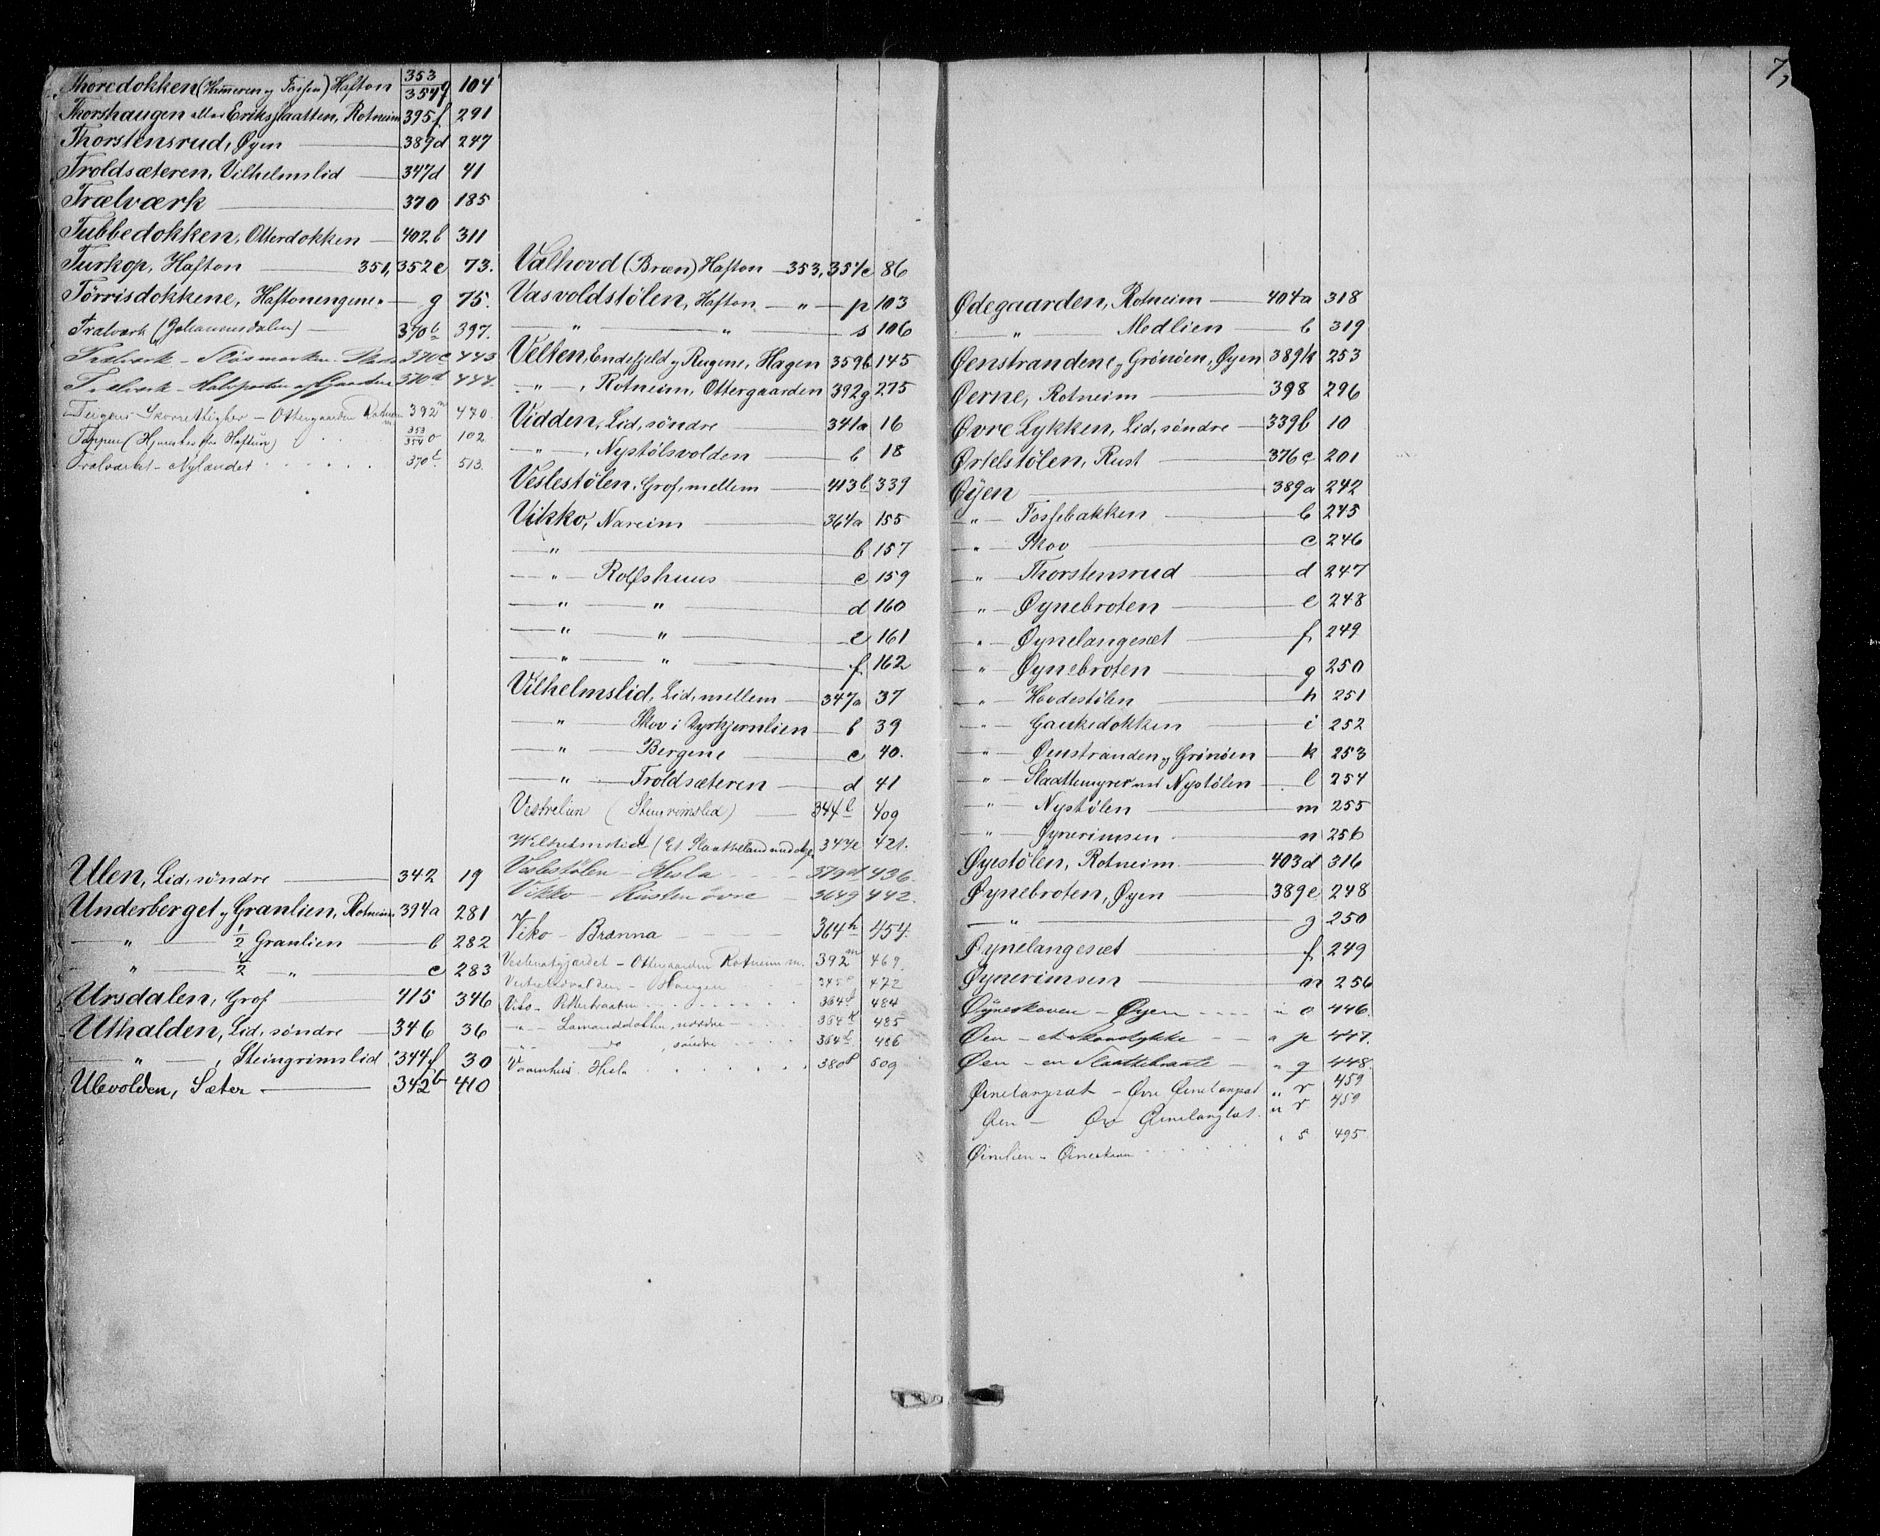 7,
Thoredokken (Kimeren y Fossen) Hafton 353/354 q 104
Thorshaugen eller Eriksslaatten, Rotneim 395 f 291
Thorstensrud, Øyen 389 d 247
Troldsæteren, Vilhelmslid 347 d 41
Trælværk 370 185
Tubbedokken, Otterdokken 402 b 311
Turkop, Hafton 351, 352 e 73.
Tørrisdokkene, Haftonengene " g 75.
Trælværk (Johannesdalen) 370 b 397.
Trælværk - 370 c 443
Trælværk - Halvparten af Gaarden 370 d 444.
Teigens Skovrettighed - Ottergaarden Rotneim 392 m 470.
Tappen (Hjemhører Haftun) 353/354 o 102
Trælværket - Nylandet 370 513.
Ulen, Lid, søndre 342 19
Underberget y Granlien, Rotneim 394 a 281
" 1/2 Granlien b 282
" 1/2 " c 283
Ursdalen, Grøf 415 346
Uthalden, Lid, søndre 346 36
" , Steingrimslid 344 f 30
Ulevolden, Sæter 342 b 410
Valhovd (Bræn) Hafton 353, 354 c 86
Vasvoldstølen, Hafton " p 103
" " s 106
Velten, Endefjeld y Rugene, Hagen 359 b 145
" , Rotneim, Ottergaarden 392 g 275
Vidden, Lid, søndre 341 a 16
" , Nystølsvolden b 18
Veslestølen, Grøf, mellem 413 b 339
Vikko, Nareim 364 a 155
" b 157
" Rolfshuus c 159
" " d 160
" " e 161
" " f 162
Vilhelmslid, Lid, mellem 347 a 37
" Skov i Dyrhjernlien b 39
" Bergene c 40.
" Troldsæteren d 41
Vestrelien (Steingrimslid) 344 l 409
Wilhelmslid (Et Slaatteland 347 e 421.
Veslestølen - Hesla 379 d 436
Vikko - Rusten øvre 364 g 442.
Viko - Brænna 364 h 454.
Vestenstgjærdet - Ottergaarden Rotneim m. 392 m 469.
- Haugen 345 472
Viko - Petterbraaten 364 484
" - Lamanddokken, nordre 364 k 485
" - do , søndre 364 l 486
Vaarnhus Hesla 380 509
Ødegaarden, Rotneim 404 a 318
" Medlien b 319
Øenstrandene y Grønøen, Øyen 389 k 253
Øerne, Rotneim 398 296
Øvre Lykken, Lid, søndre 339 b 10
Ørtelstølen, Rust 376 c 201
Øyen 389 a 242
" Fossebakken b 245
" Skov c 246
" Thorstensrud d 247
" Øynebroten e 248
" Øynelangesæt f 249
" Øynebroten g 250
" Hovdestølen h 251
" Gaukedokken i 252
" Øenstranden y Grønøen k 253
" Slaattemyrer ved Nystølen l 254
" Nystølen m 255
" Øynerimsen n 256
Øyestølen, Rotneim 403 d 316
Øynebroten, Øyen 389 e 248
" g 250
Øynelangesæt f 249
Øynerimsen n 256
Øyneskoven - Øyen " o 446.
Øen - et Skovstykke " p 447.
Øen - en Slaattebraate " q 448.
Øinelangesæt - Øvre Øinelangesæt " r 459
Øen - Øvre Øinelangesæt " r 459
Øinelien - Øineskoven " s 495